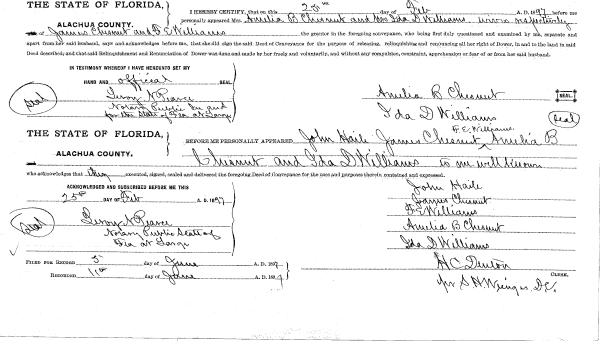 THE STATE OF FLORIDA,
ALACHUA COUNTY.
I HEREBY CERTIFY, that on this 25th day of Feb A. D. 1897, before me
personally appeared Mrs. Amelia B Chesnut and Mrs Ida D Williams wives respectively
of James Chesnut and F E Williams the grantor in the foregoing conveyance, who being first duly questioned and examined by me, separate and
apart from her said husband, says and acknowledges before me, that she did sign the said Deed of Conveyance for the purpose of releasing, relinquishing and renouncing all her right of Dower, in and to the land in said
Deed described; and that said Relinquishment and Renunciation of Dower was done and made by her freely and voluntarily, and without any compulsion, constraint, apprehension or fear of or from her said husband.
IN TESTIMONY WHEREOF I HAVE HEREUNTO SET MY
HAND AND official SEAL.
Seal
Leroy N Pearce
Notary Public in and
for the State of Fla at Large
Amelia B Chesnut
SEAL.
Ida D Williams
Seal
F. E. Williams.
THE STATE OF FLORIDA,
ALACHUA COUNTY.
BEFORE ME PERSONALLY APPEARED John Haile James Chesnut Amelia B
Chesnut and Ida D Williams to me well known
who acknowledges that they executed, signed, sealed and delivered the foregoing Deed of Conveyance for the uses and purposes therein contained and expressed.
ACKNOWLEDGED AND SUBSCRIBED BEFORE ME THIS
25th DAY OF Feb A. D. 1897
Seal
Leroy N Pearce
Notary Public State of
Fla at Large
John Haile
James Chesnut
F E Williams
Amelia B Chesnut
Ida D Williams
FILED FOR RECORD 5 day of June A. D. 1897
RECORDED 11th day of June A. D. 1897
H C Denton
CLERK.
per S H Wienges D.C.